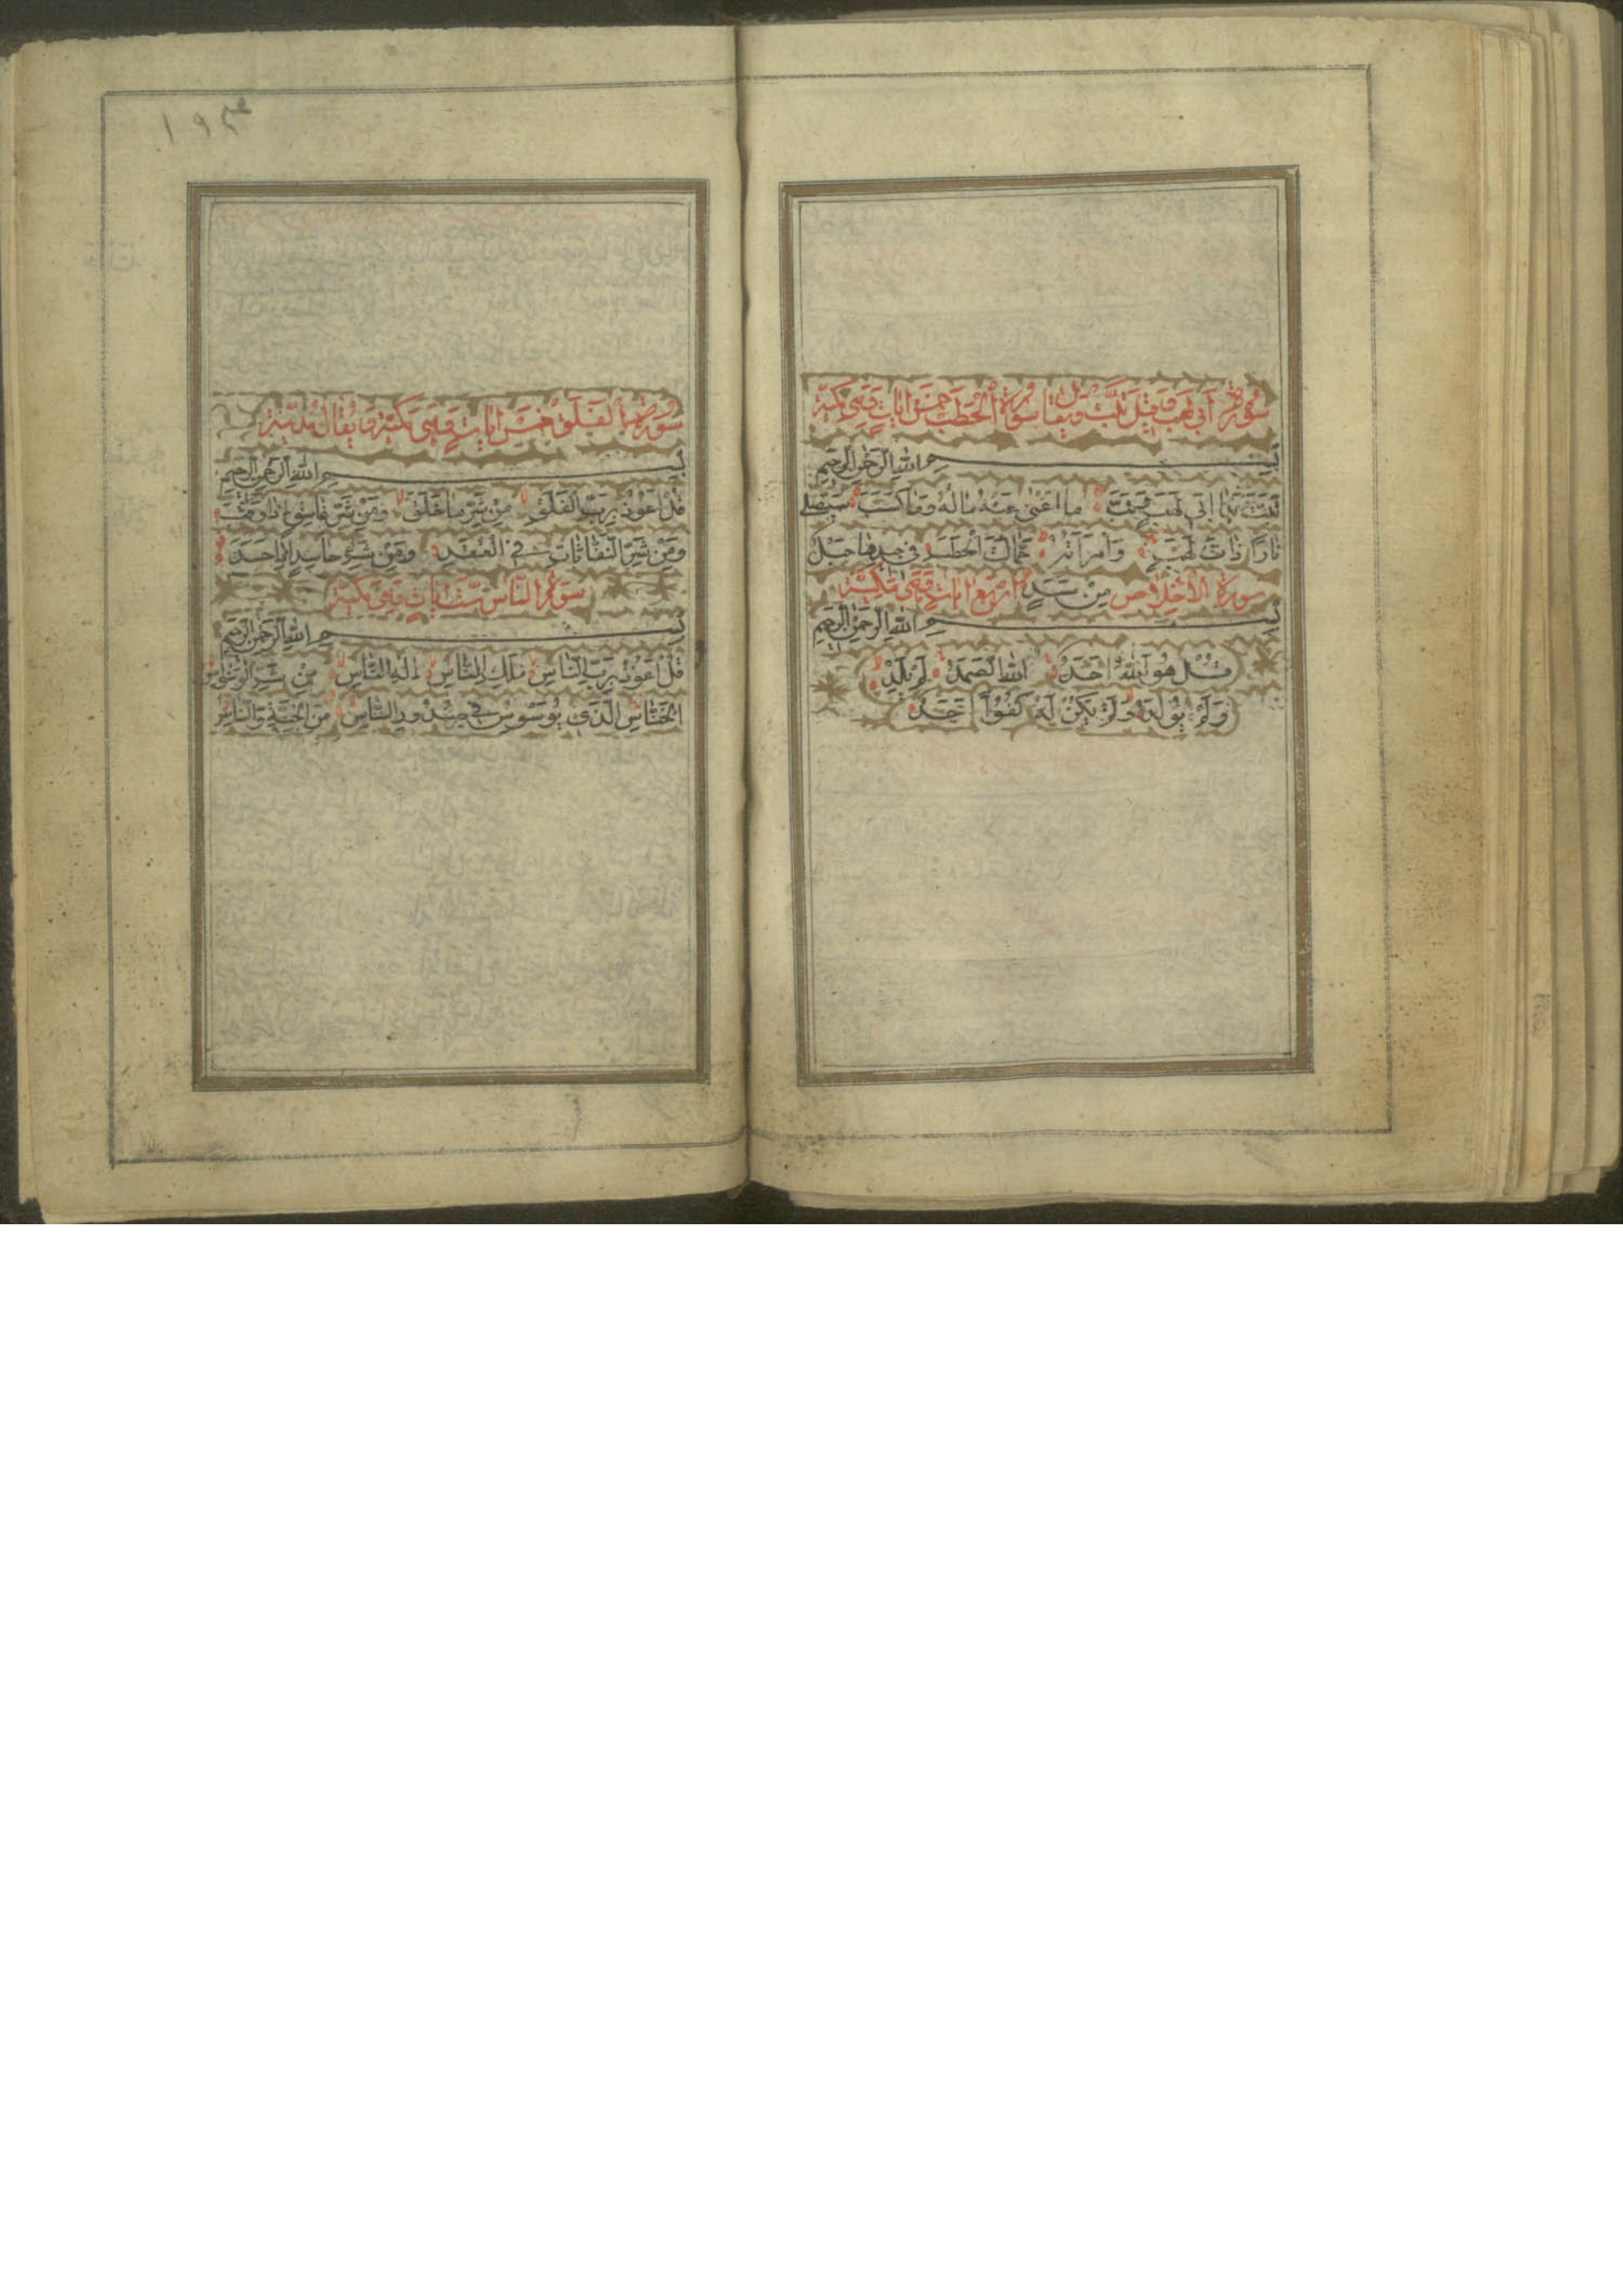 سورة أبي لهب وقيل تبت ويقال سورة الحطب خمس ايات وهي مكية
بسم الله الرحمن الرحيم
تَبَّتْ يَدَا اَبِي لَهَبٍ وَتَبَّ مَا اَغْنٰى عَنْهُ مَالُهُ وَمَا كَسَبَ سَيَصْلٰى
نَارًا ذَاتَ لَهَبٍ وَامْرَاَتُهُ حَمَّالَةَ الْحَطَبِ فِي جِيدِهَا حَبْلٌ
مِنْ مَسَدٍ سورة الاخلاص اربع ايات وهي مكية
بسم الله الرحمن الرحيم
قُلْ هُوَ اللّٰهُ اَحَدٌ اَللّٰهُ الصَّمَدُ لَمْ يَلِدْ
وَلَمْ يُولَدْ وَلَمْ يَكُنْ لَهُ كُفُوًا اَحَدٌ
سورة الفلق خمس ايات وهي مكية ويقال مدنية
بسم الله الرحمن الرحيم
قُلْ اَعُوذُ بِرَبِّ الْفَلَقِ مِنْ شَرِّ مَا خَلَقَ وَمِنْ شَرِّ غَاسِقٍ اِذَا وَقَبَ
وَمِنْ شَرِّ النَّفَّاثَاتِ فِي الْعُقَدِ وَمِنْ شَرِّ حَاسِدٍ اِذَا حَسَدَ
سورة الناس ست ايات وهي مكية
بسم الله الرحمن الرحيم
قُلْ اَعُوذُ بِرَبِّ النَّاسِ مَلِكِ النَّاسِ اِلٰهِ النَّاسِ مِنْ شَرِّ الْوَسْوَاسِ
الْخَنَّاسِ الَّذِي يُوَسْوِسُ فِي صُدُورِ النَّاسِ مِنَ الْجِنَّةِ وَالنَّاسِ